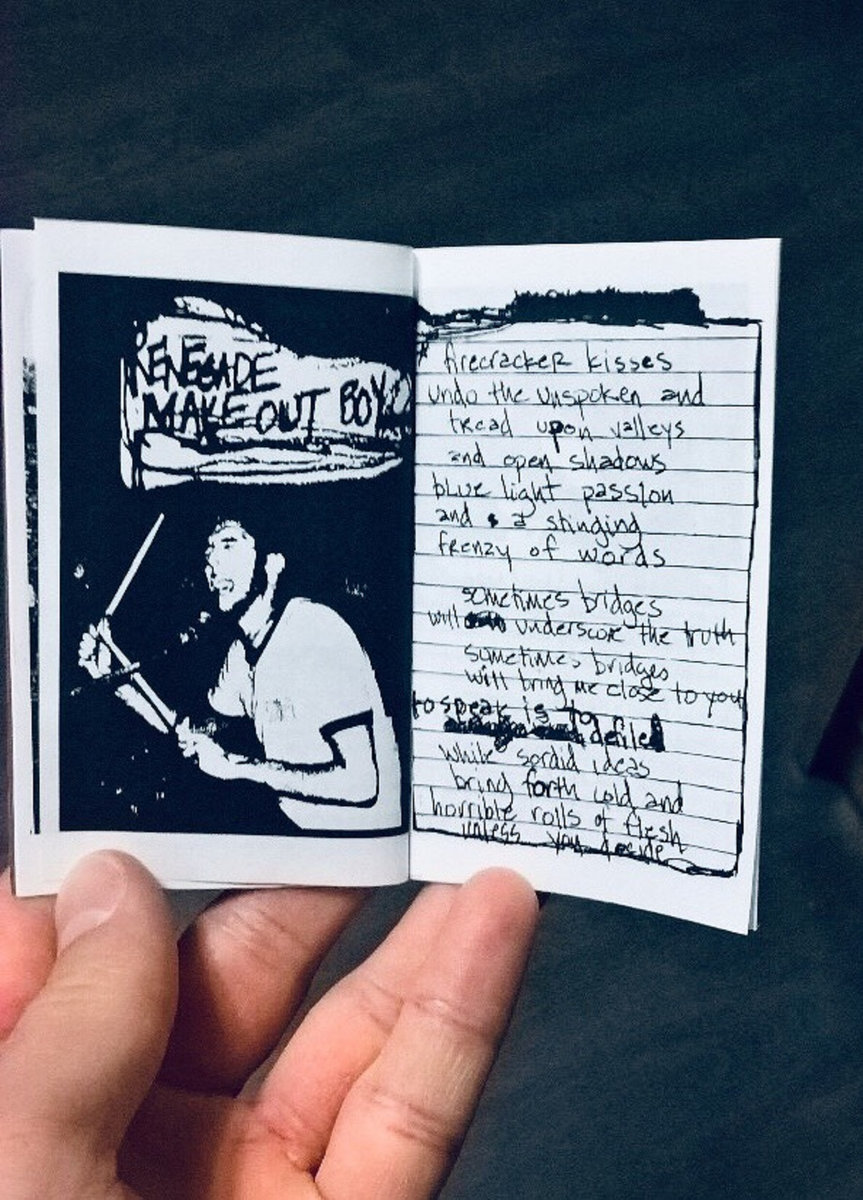 RENEGADE
MAKE OUT BOY
firecracker kisses
undo the unspoken and
tread upon valleys
and open shadows
blue light passion
and a stinging
frenzy of words
sometimes bridges
will underscore the truth
sometimes bridges
will bring me close to you
to speak is to
defiled
while sordid ideas
bring forth cold and
horrible rolls of flesh
unless you decide